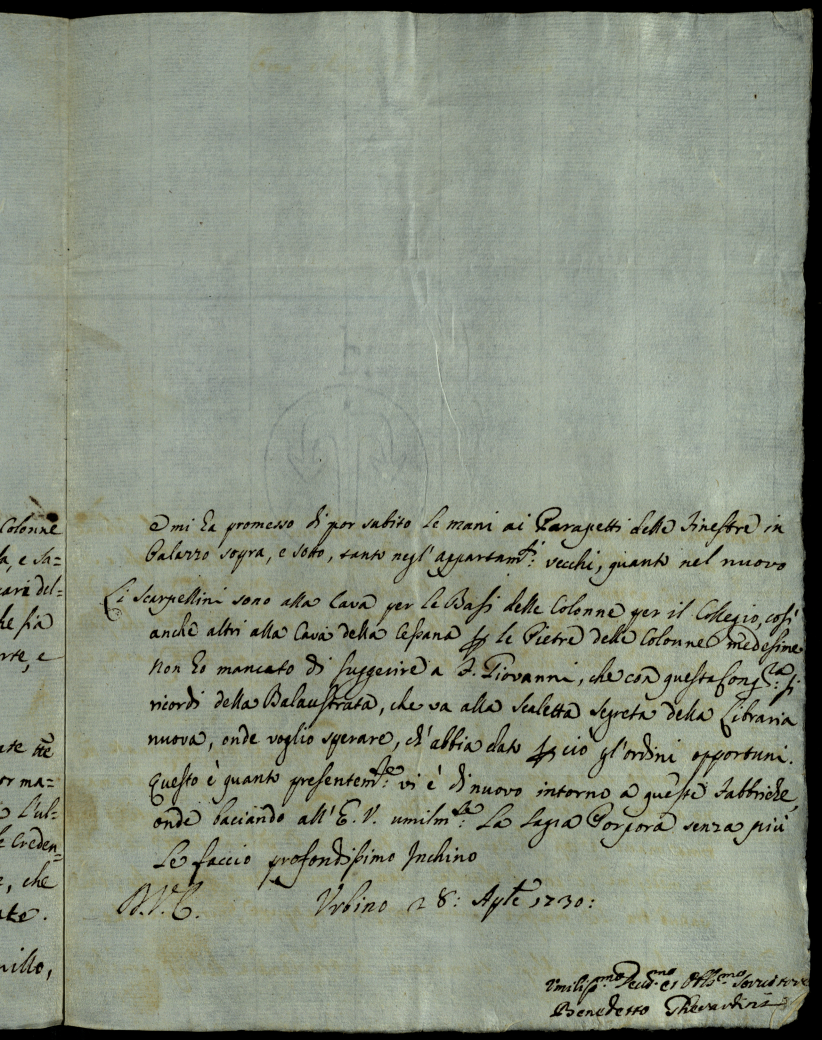 Colonne
la, e sa=
cara del=
he sia
rte, e
ate
or ma=
L'ul=
e Creden=
e, che
ate.
nillo,
e mi ha promesso di por subito le mani ai Parapetti delle Finestre in
Palazzo sopra, e sotto, tanto negl'appartam:ti vecchi, quanto nel nuovo
Li Scarpellini sono alla Cava per le Basi delle Colonne per il Collegio, così
anche altri alla Cava della Cesana p le Pietre delle Colonne medesime
Non ho mancato di suggerire a F. Giovanni, che con questa Cong:ra si
ricordi della Balaustrata, che va alla scaletta segreta della Libraria
nuova, onde voglio sperare, ch'abbia dato p ciò gl'ordini opportuni.
Questo è quanto presentem:te vi è di nuovo intorno a queste Fabbriche,
onde baciando all'E. V. umilm:te la Sagra Porpora senza più
Le faccio profondissimo Inchino
Urbino 28: Aple 1730:
Umiliss:mo Deud:mo et Obb:mo Servitore
Benedetto Gherardini